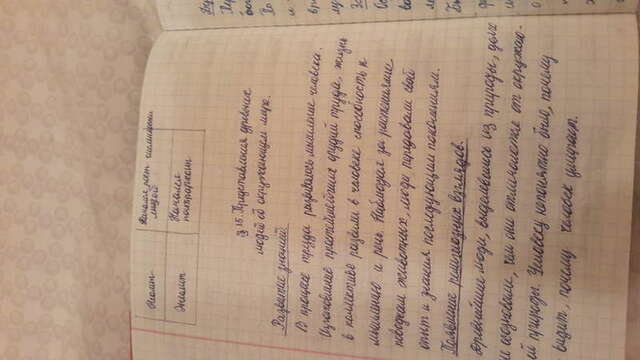 Неолит
Начался рост численности
людей
Энеолит
Начался
патриархат
§ 15. Представления древних
людей об окружающем мире.
Развитие знаний.
В процессе труда развивалось мышление человека.
Изготовление простейших орудий труда, жизнь
в коллективе развили в человеке способность к
мышлению и речь. Наблюдая за растениями
поведкам животных, люди передавали свой
опыт и знания последующим поколениям.
Появление религиозных взглядов.
Древнейшие люди, выделевшись из природы, долго
не осознавали, чем они отличаются от окружаю-
ей природы. Человеку непонятно было, почему
видит, почему человек умирает.